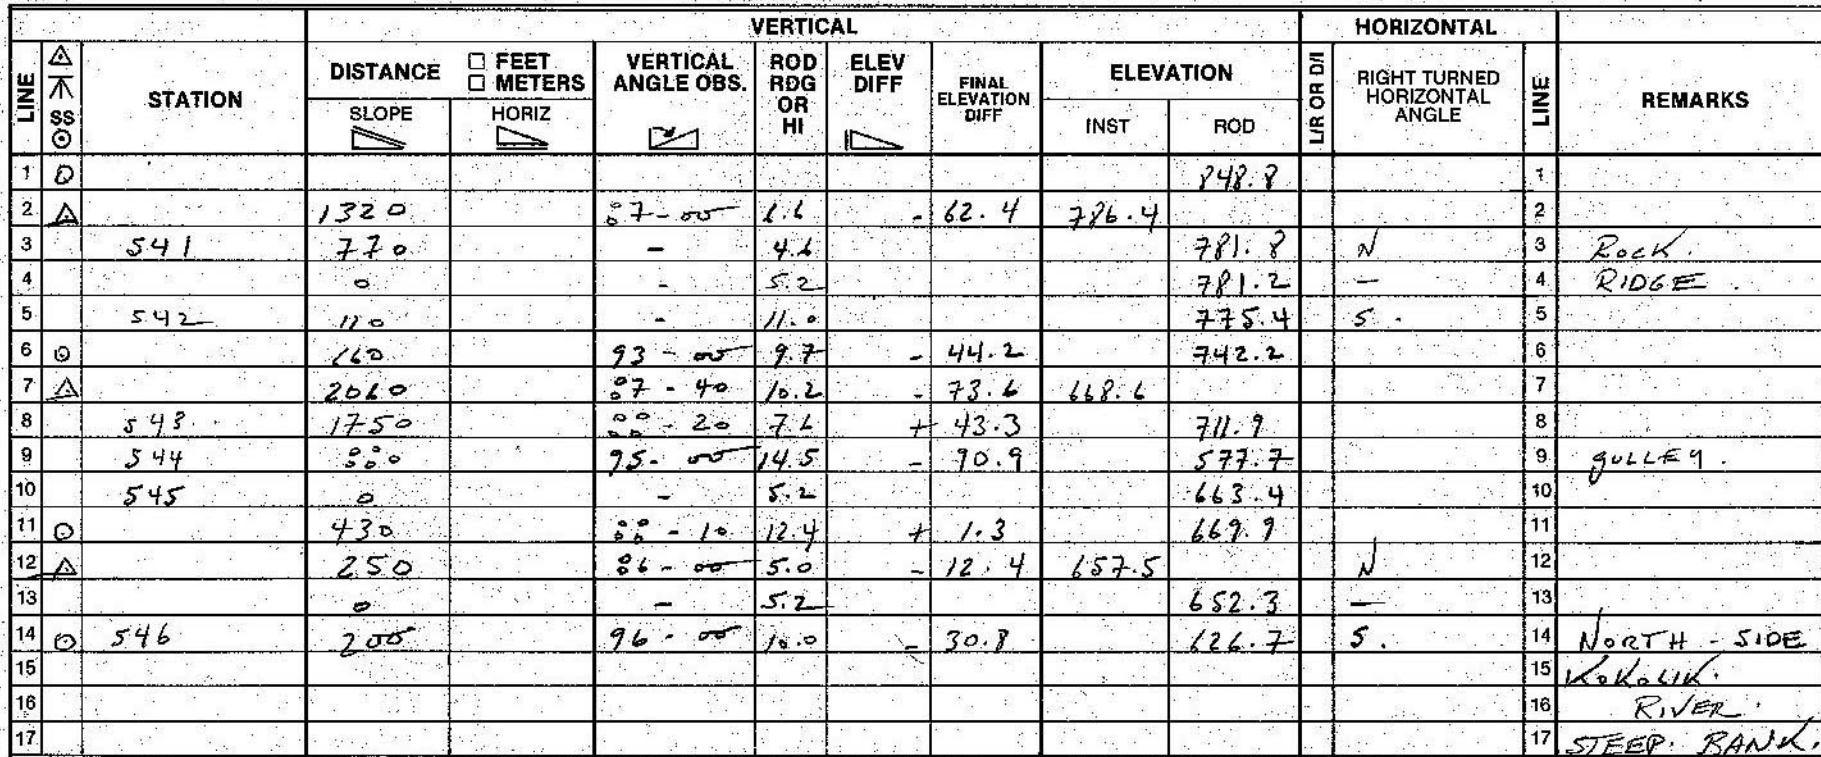 VERTICAL HORIZONTAL
LINE SS STATION DISTANCE FEET METERS VERTICAL ANGLE OBS. ROD RDG OR HI ELEV DIFF FINAL ELEVATION DIFF ELEVATION L/R OR D/I RIGHT TURNED HORIZONTAL ANGLE LINE REMARKS
SLOPE HORIZ INST ROD
1 848.8 1
2 1320 87-00 6.6 - 62.4 786.4 2
3 541 770 - 4.6 781.8 N 3 ROCK.
4 0 - 5.2 781.2 — 4 RIDGE.
5 542 110 - 11.0 775.4 S. 5
6 660 93-00 9.7 - 44.2 742.2 6
7 2060 87-40 10.2 - 73.6 668.6 7
8 543 1750 88-20 7.6 + 43.3 711.9 8
9 544 880 95-00 14.5 - 90.9 577.7 9 GULLEY.
10 545 0 - 5.2 663.4 10
11 430 88-10 12.4 + 1.3 669.9 11
12 250 86-00 5.0 - 12.4 657.5 N 12
13 0 - 5.2 652.3 — 13
14 546 200 96-00 10.0 - 30.8 626.7 S. 14 NORTH - SIDE
15 15 KOKOLIK.
16 16 RIVER.
17 17 STEEP. BANK.